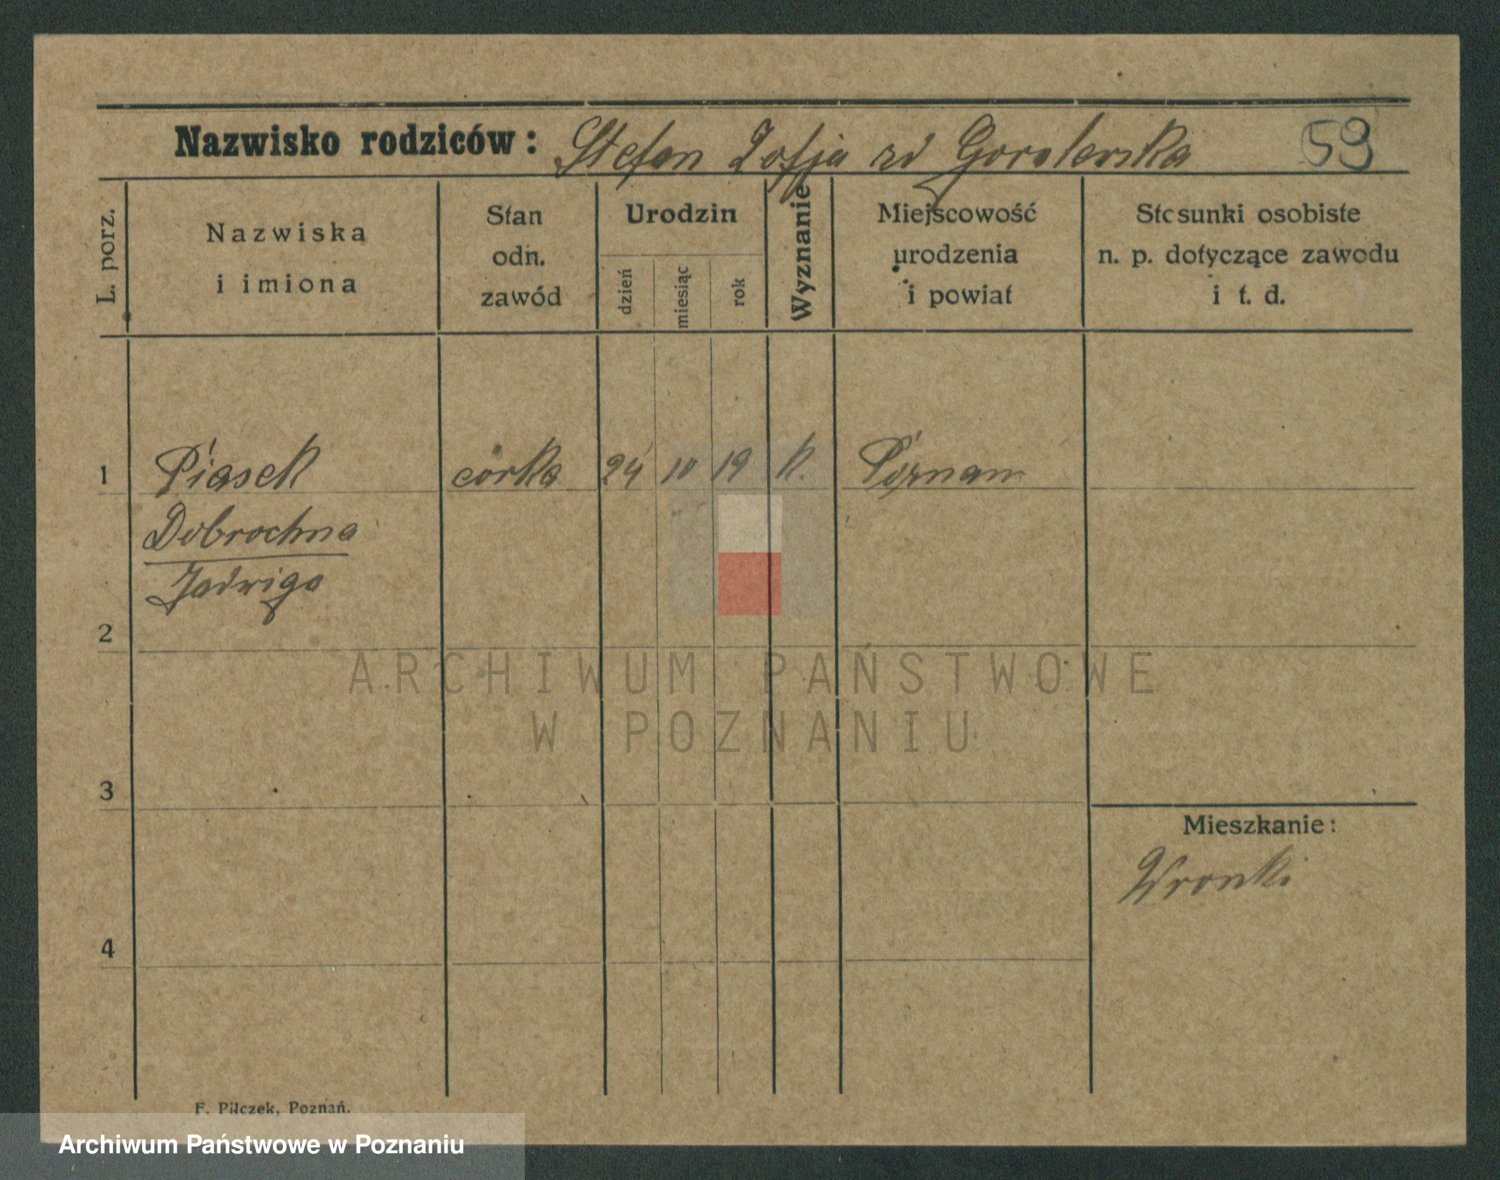 Nazwisko rodziców: Stefan Zofja zd Goralewska 59
L. porz.
Nazwiska
i imiona
Stan
odn.
zawód
Urodzin
dzień
miesiąc
rok
Wyznanie
Miejscowość
urodzenia
i powiat
Stosunki osobiste
n. p. dotyczące zawodu
i t. d.
1 Piasek córka 24 10 19 k. Poznań
Dobrochna
Jadwiga
2
ARCHIWUM PAŃSTWOWE
W POZNANIU
3
Mieszkanie:
Wronki
4
F. Pilczek, Poznań.
Archiwum Państwowe w Poznaniu